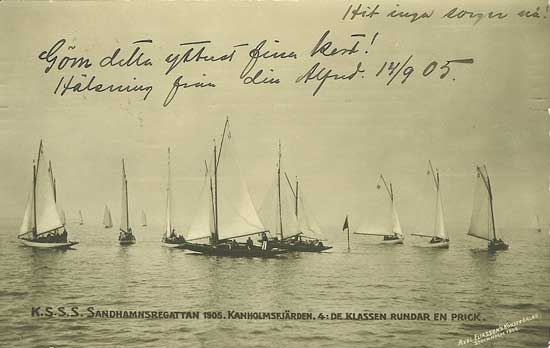 Hit inga sorger nå!
Göm detta ytterst fina kort!
Hälsning från din Alfred. 14/9 05
K.S.S.S. SANDHAMNSREGATTAN 1905. KANHOLMSFJÄRDEN. 4:DE KLASSEN RUNDAR EN PRICK.
AXEL ELIASSONS KONSTFÖRLAG
STOCKHOLM 1905